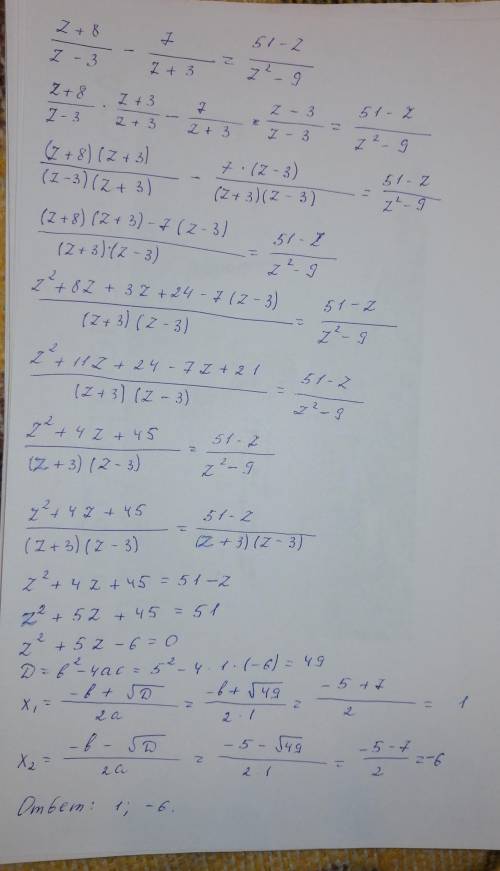 (z+8)/(z-3) - 7/(z+3) = (51-z)/(z²-9)
(z+8)/(z-3) · (z+3)/(z+3) - 7/(z+3) · (z-3)/(z-3) = (51-z)/(z²-9)
((z+8)(z+3))/((z-3)(z+3)) - (7·(z-3))/((z+3)(z-3)) = (51-z)/(z²-9)
((z+8)(z+3)-7(z-3))/((z+3)·(z-3)) = (51-z)/(z²-9)
(z²+8z+3z+24-7(z-3))/((z+3)(z-3)) = (51-z)/(z²-9)
(z²+11z+24-7z+21)/((z+3)(z-3)) = (51-z)/(z²-9)
(z²+4z+45)/((z+3)(z-3)) = (51-z)/(z²-9)
(z²+4z+45)/((z+3)(z-3)) = (51-z)/((z+3)(z-3))
z²+4z+45=51-z
z²+5z+45=51
z²+5z-6=0
D=b²-4ac=5²-4·1·(-6)=49
x₁= (-b+√D)/(2a) = (-b+√49)/(2·1) = (-5+7)/2 = 1
x₂= (-b-√D)/(2a) = (-5-√49)/(2·1) = (-5-7)/2 =-6
Ответ: 1; -6.